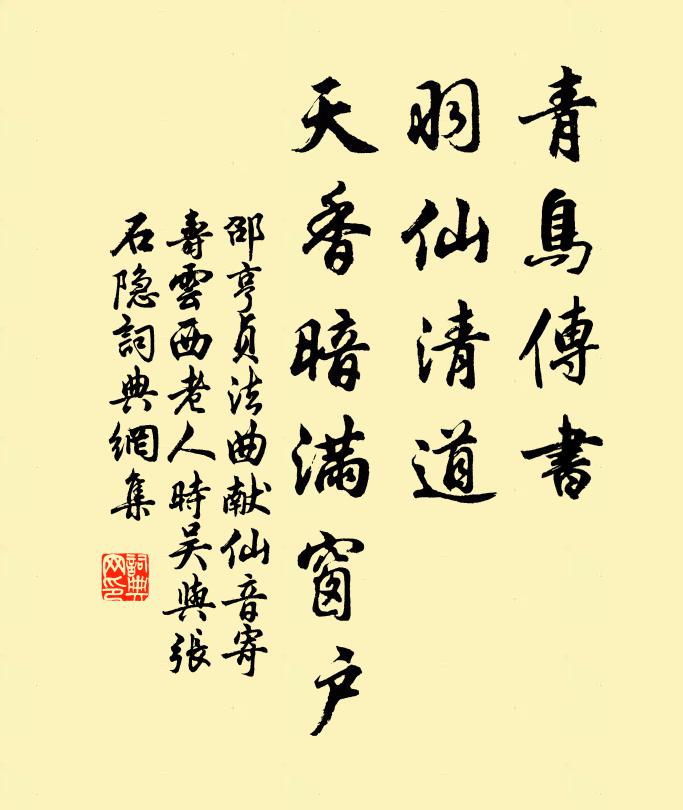 青鳥傳書
羽仙清道
天香暗滿窗户
邵亨貞法曲献仙音寄
壽雲西老人時吴與張
石隐詞典網集
詞典
网印